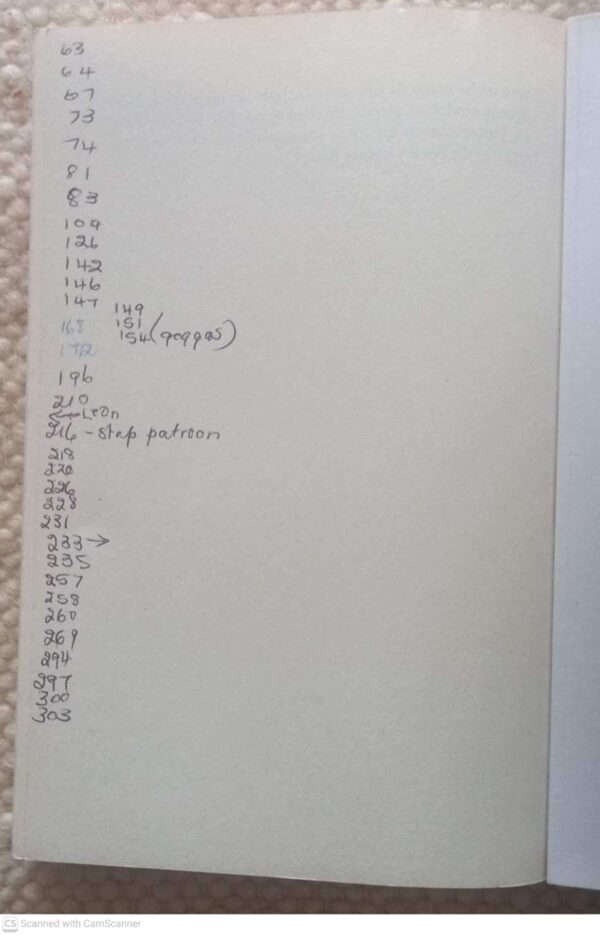 63
64
67
73
74
81
83
109
126
142
146
147
149
151
154 (goggas)
168
172
196
210
Leon
216 - stap patroon
218
220
226
228
231
233 →
235
257
258
260
269
294
297
300
303
CS Scanned with CamScanner